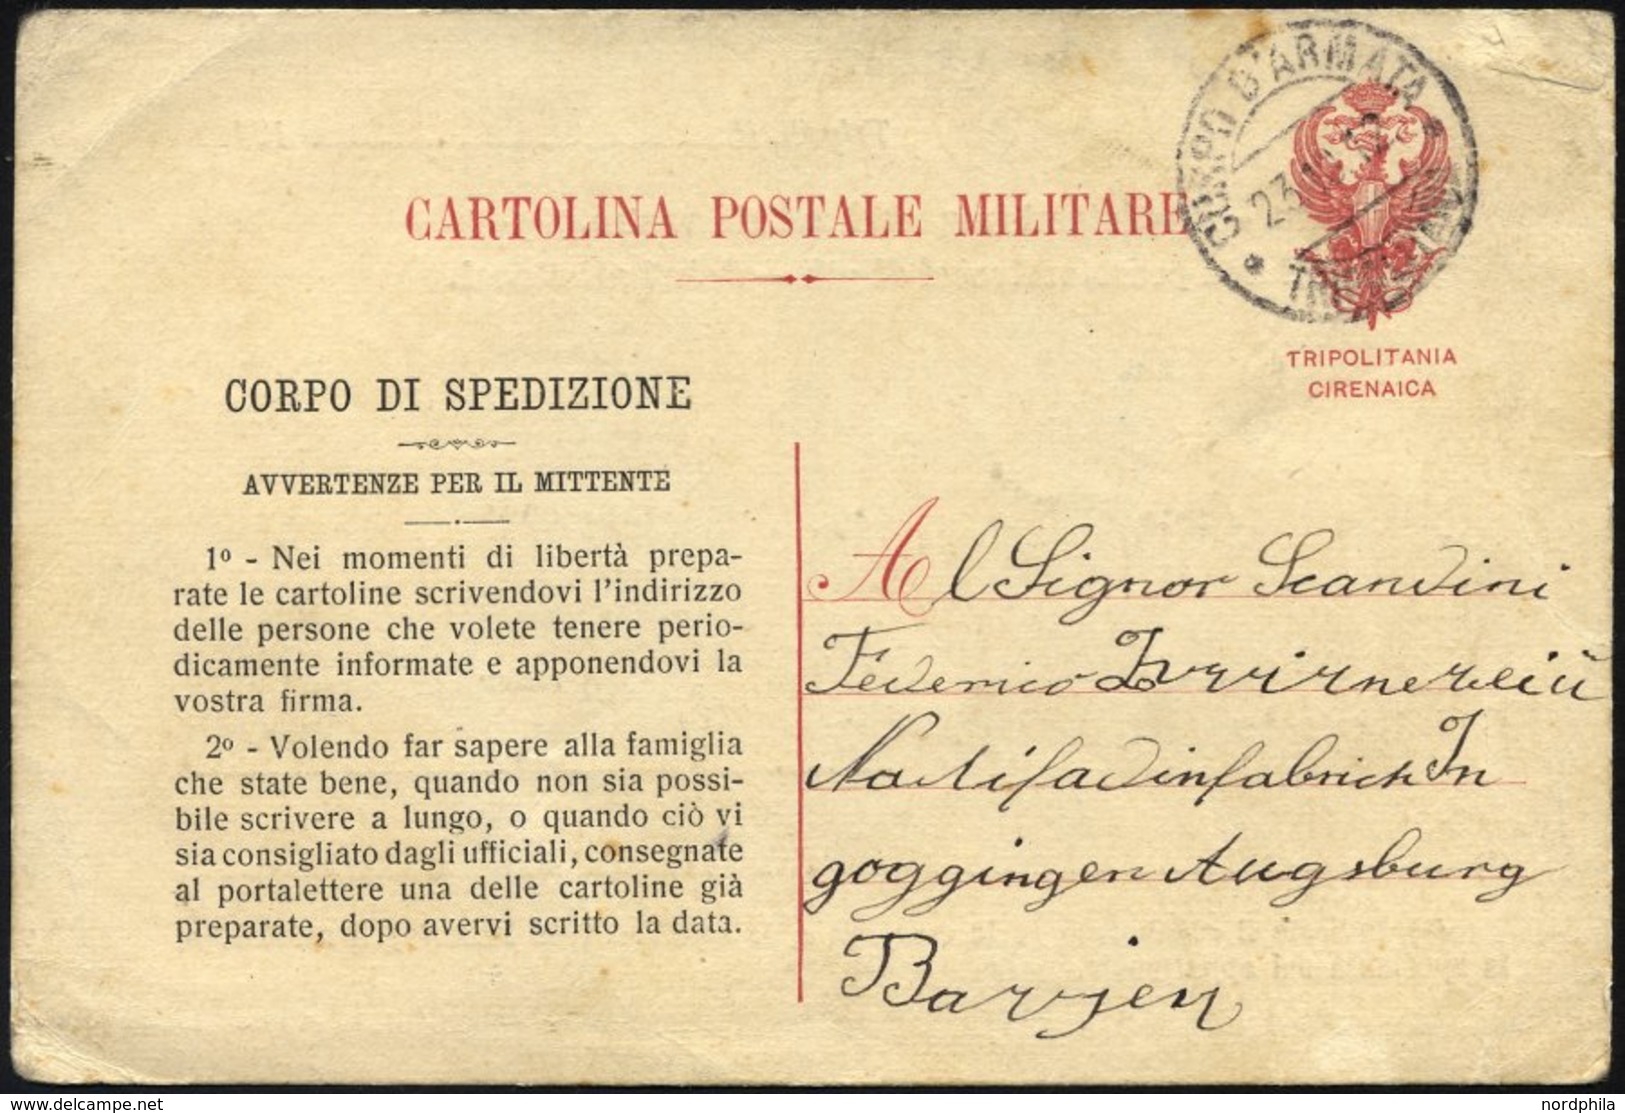 CORPO D'ARMATA
23
CARTOLINA POSTALE MILITARE
TRIPOLITANIA
CIRENAICA
CORPO DI SPEDIZIONE
AVVERTENZE PER IL MITTENTE
1º - Nei momenti di libertà prepa-
rate le cartoline scrivendovi l'indirizzo
delle persone che volete tenere perio-
dicamente informate e apponendovi la
vostra firma.
2º - Volendo far sapere alla famiglia
che state bene, quando non sia possi-
bile scrivere a lungo, o quando ciò vi
sia consigliato dagli ufficiali, consegnate
al portalettere una delle cartoline già
preparate, dopo avervi scritto la data.
Al Signor Scandini
Federico
In
goggingen Augsburg
Barjen
delcampe.net
nordphila